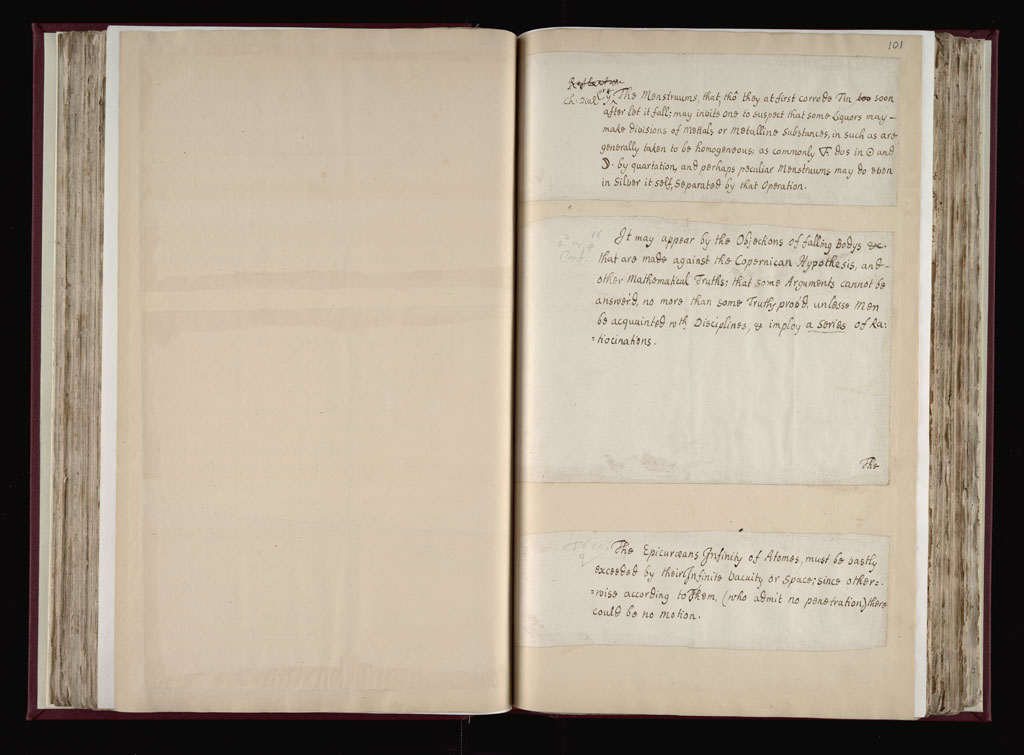 101
Ch. Dial
The Menstruums, that, thô they at first corrode Tin, too soon
after let it fall; may invite one to suspect that some Liquors may –
make divisions of Mettals or Metalline Substances, in such as are
generally taken to be homogeneous; as commonly 🜅 dos in ☉ and
☽. by quartation, and perhaps peculiar Menstruums may do even
in Silver it self, Separated by that Operation.
It may appear by the Objections of falling Bodys &c.
that are made against the Copernican Hypothesis, and –
other Mathematical Truths; that some Arguments cannot be
answer'd, no more than some Truths prov'd, unlesse Men
be acquainted wth Disciplines, & imploy a series of Ra:
=tiocinations.
Conf.
The
The Epicuræans Infinity of Atomes, must be vastly
exceeded by their Infinite Vacuity or Space; since other=
=wise according to Them, (who admit no penetration) there
could be no motion.